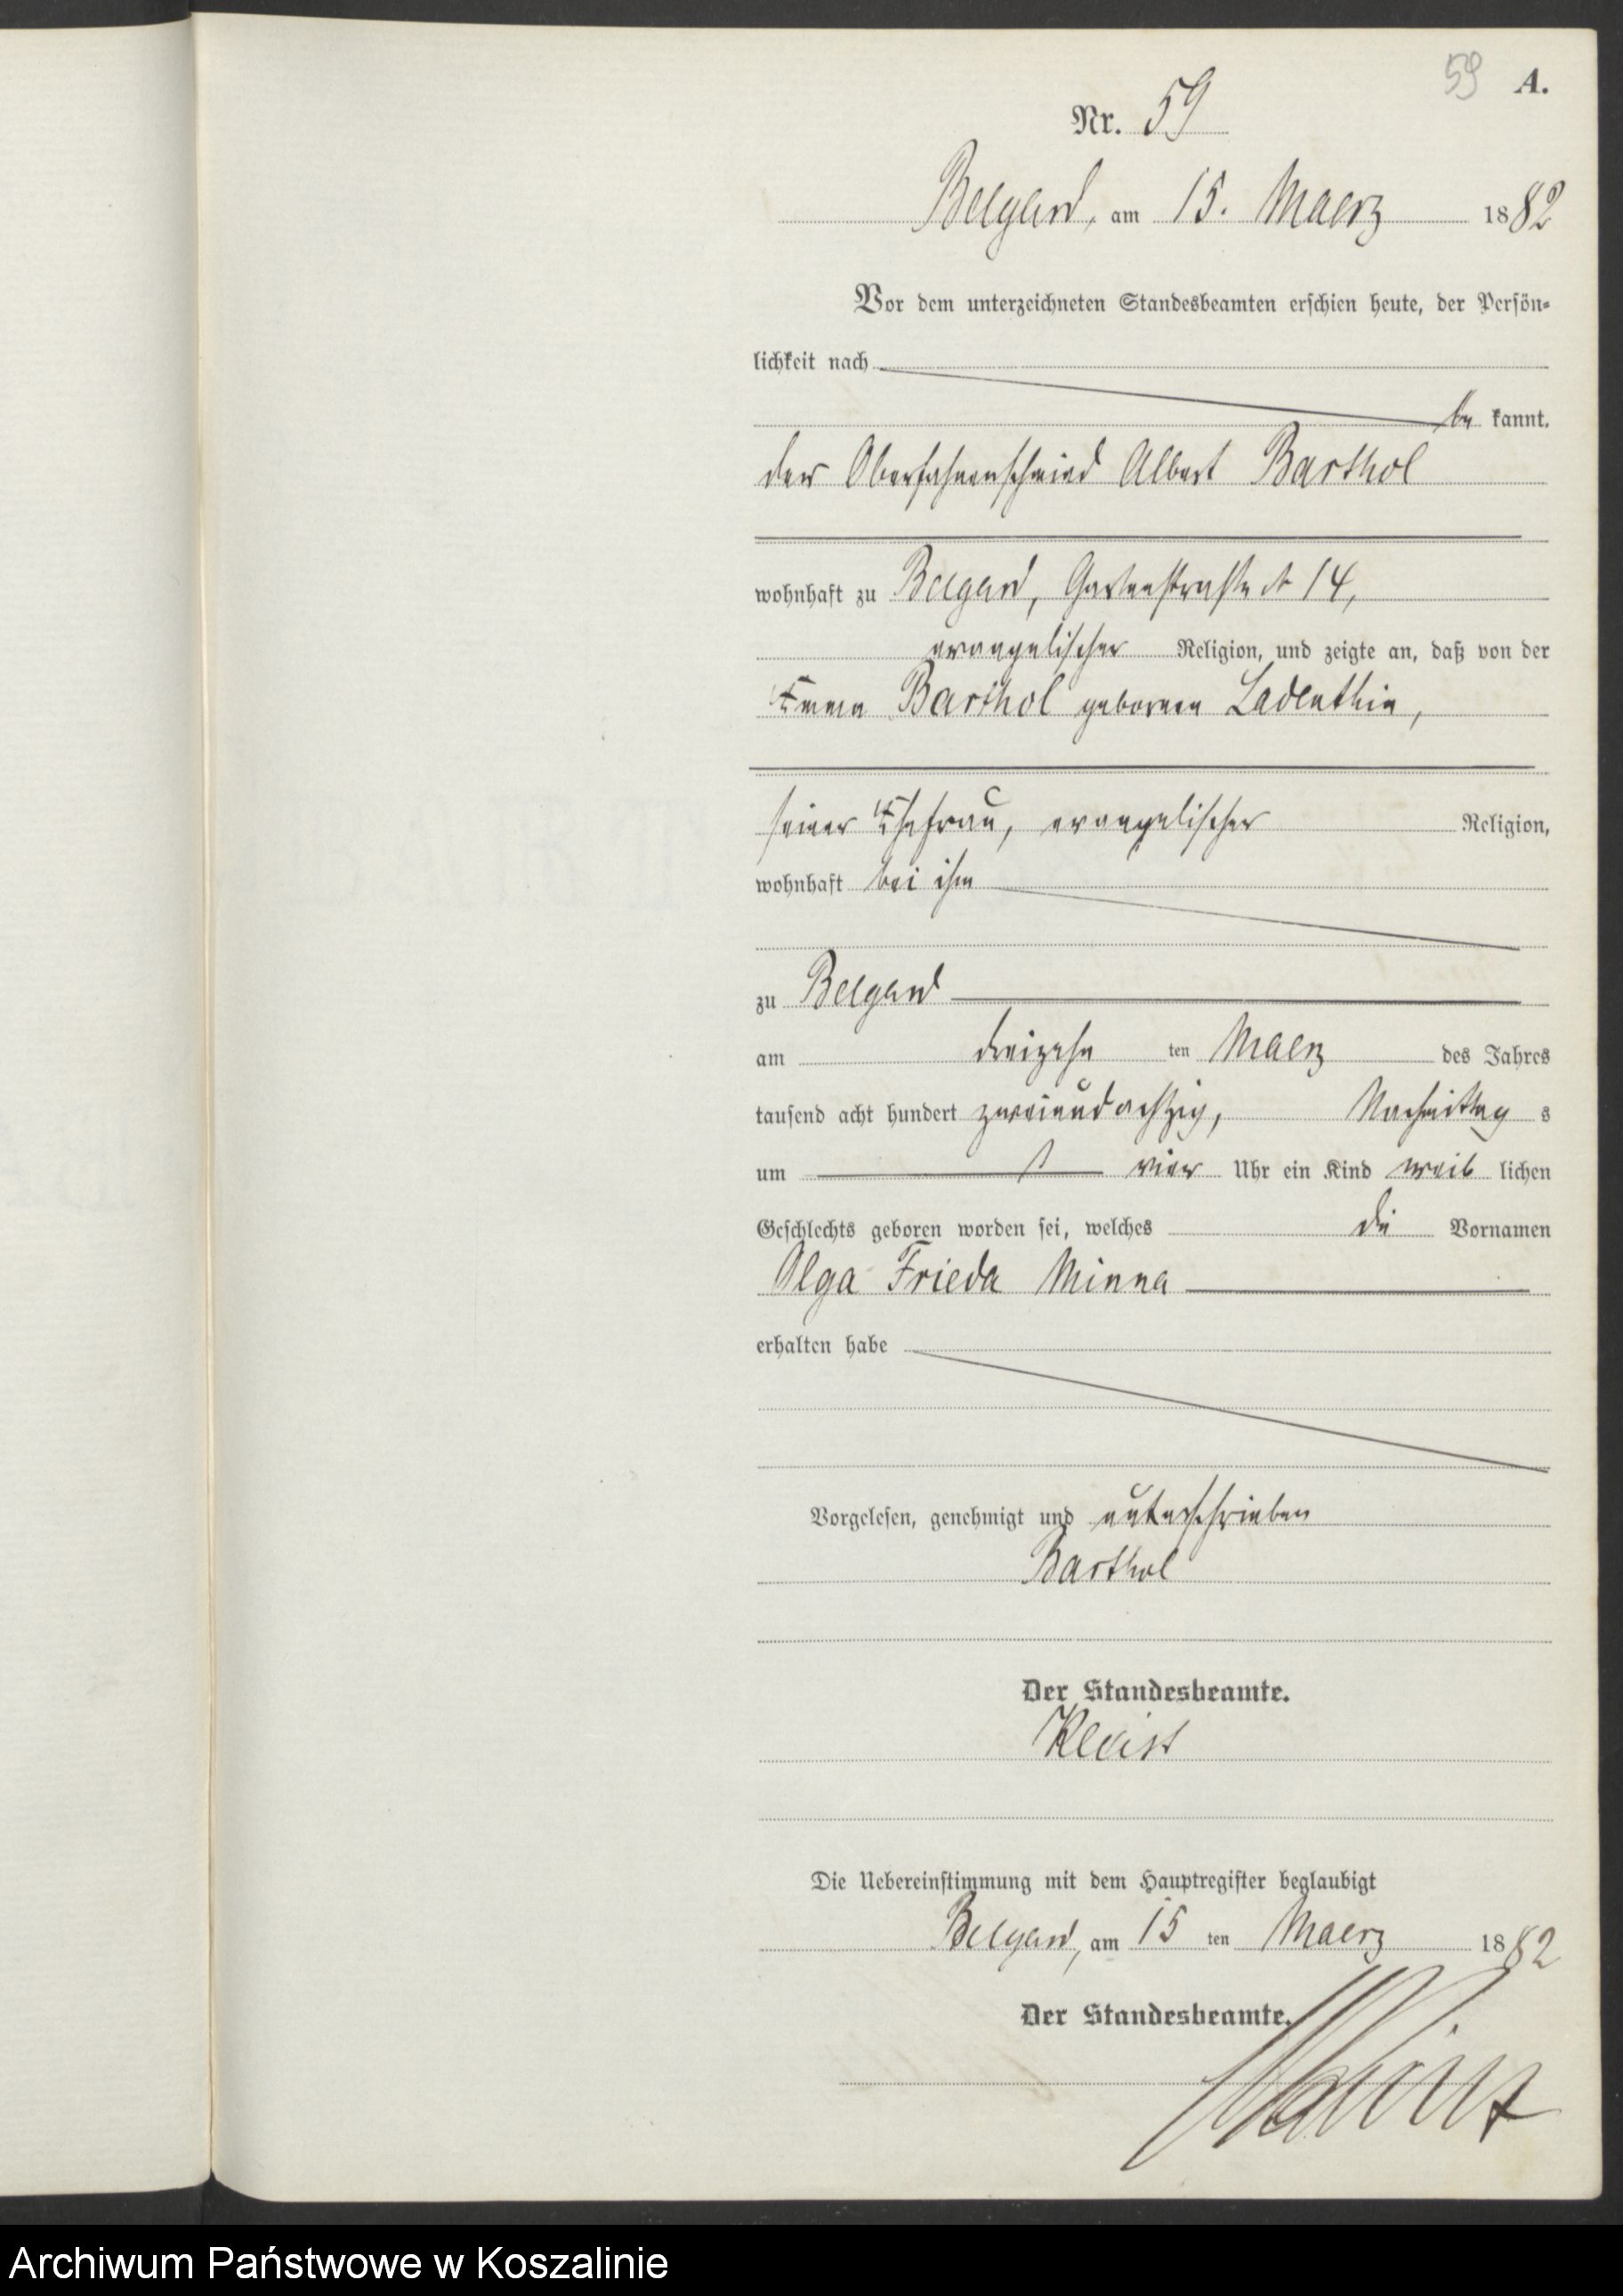 59 A.
Nr. 59
Belgard, am 15. Maerz 1882
Vor dem unterzeichneten Standesbeamten erschien heute, der Persön-
lichkeit nach
be kannt,
der Oberfahnenschmied Albert Barthol
wohnhaft zu Belgard, Gartenstraße № 14,
evangelischer Religion, und zeigte an, daß von der
Emma Barthol geborenen Ladenthin,
seiner Ehefrau, evangelischer Religion,
wohnhaft bei ihm
zu Belgard
am dreizehn ten Maerz des Jahres
tausend acht hundert zweiundachtzig, Nachmittag s
um vier Uhr ein Kind weib lichen
Geschlechts geboren worden sei, welches die Vornamen
Olga Frieda Minna
erhalten habe
Vorgelesen, genehmigt und unterschrieben
Barthol
Der Standesbeamte.
Kleist
Die Uebereinstimmung mit dem Hauptregister beglaubigt
Belgard, am 15 ten Maerz 1882
Der Standesbeamte.
Archiwum Państwowe w Koszalinie